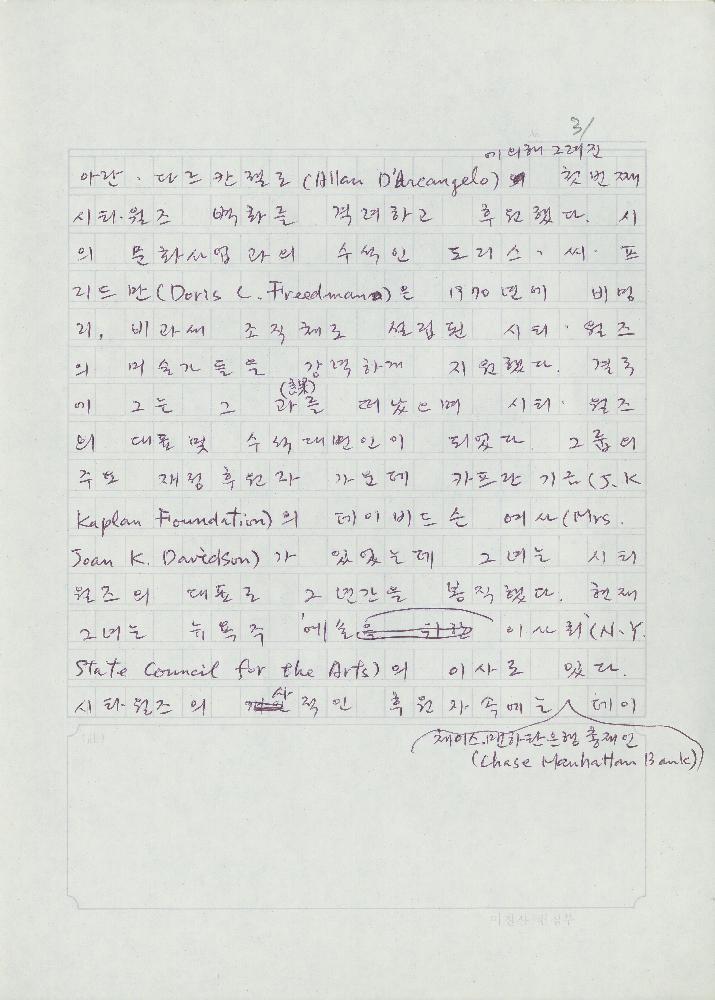 3/
에 의해 그려진
아란·다르칸젤로(Allan D'Arcangelo) 첫번째
시티·월즈 벽화를 격려하고 후원했다. 시
의 문화사업과의 수석인 도리스·씨·프
리드만(Doris C. Freedman)은 1970년에 비영
리, 비과세 조직체로 설립된 시티·월즈
의 미술가들을 강력하게 지원했다. 결국
에 그는 그 과(課)를 떠났으며 시티·월즈
의 대표 및 수석대변인이 되었다. 그룹의
주요 재정후원자 가운데 카프란 기금(J.K
Kaplan Foundation)의 데이비드슨 여사(Mrs.
Joan K. Davidson)가 있었는데 그녀는 시티
월즈의 대표로 2년간을 봉직했다. 현재
그녀는 뉴욕주 '예술 이사회'(N.Y.
State Council for the Arts)의 이사로 있다.
시티·월즈의 사적인 후원자속에는 데이
체이스·맨하탄은행 총재인
(Chase Manhattan Bank)